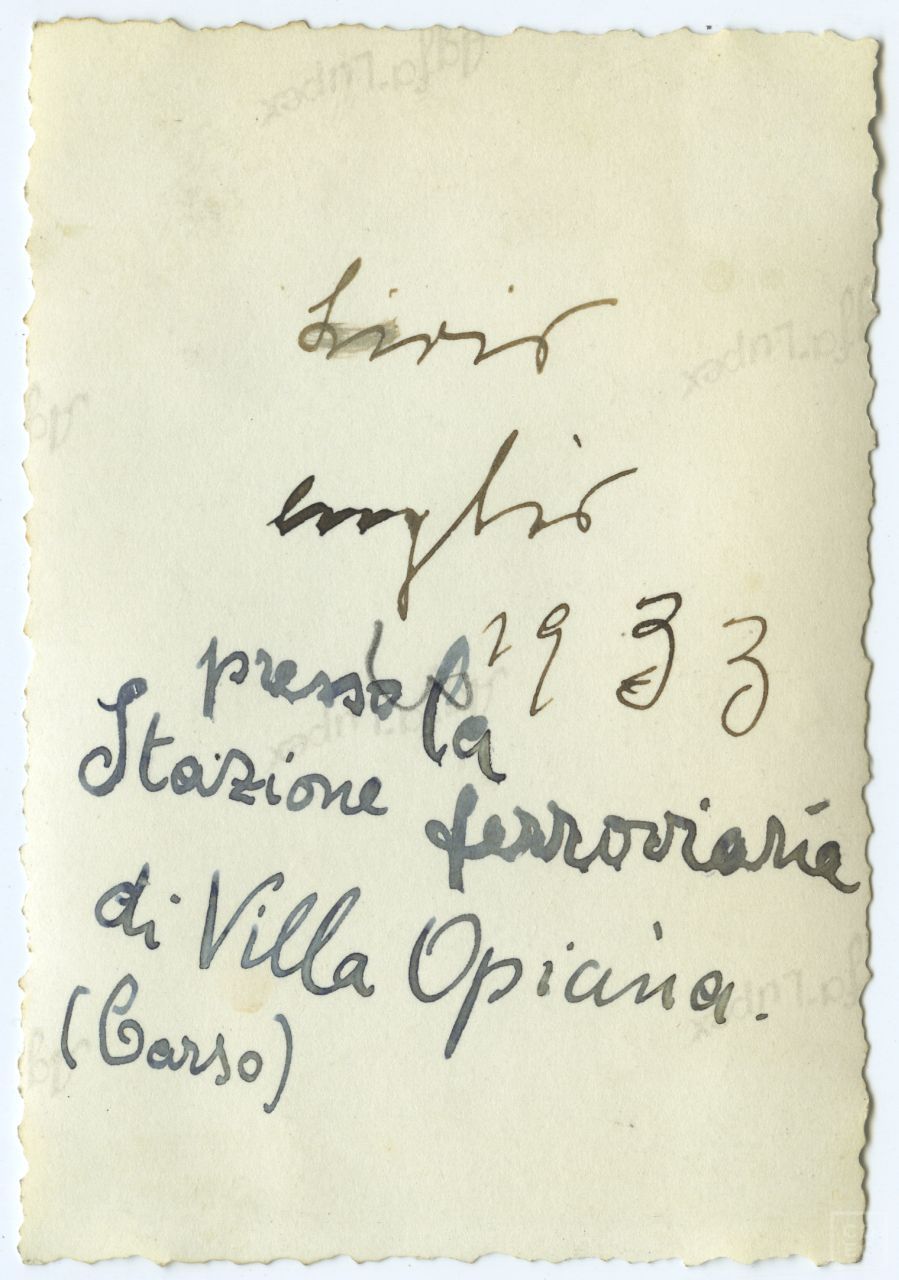 Agfa-Lupex
Livio
Agfa-Lupex
Ag
luglio
1933
presso la
Agfa-Lupex
Stazione ferroviaria
di Villa Opicina.
Agfa-Lupex
(Carso)
Ag